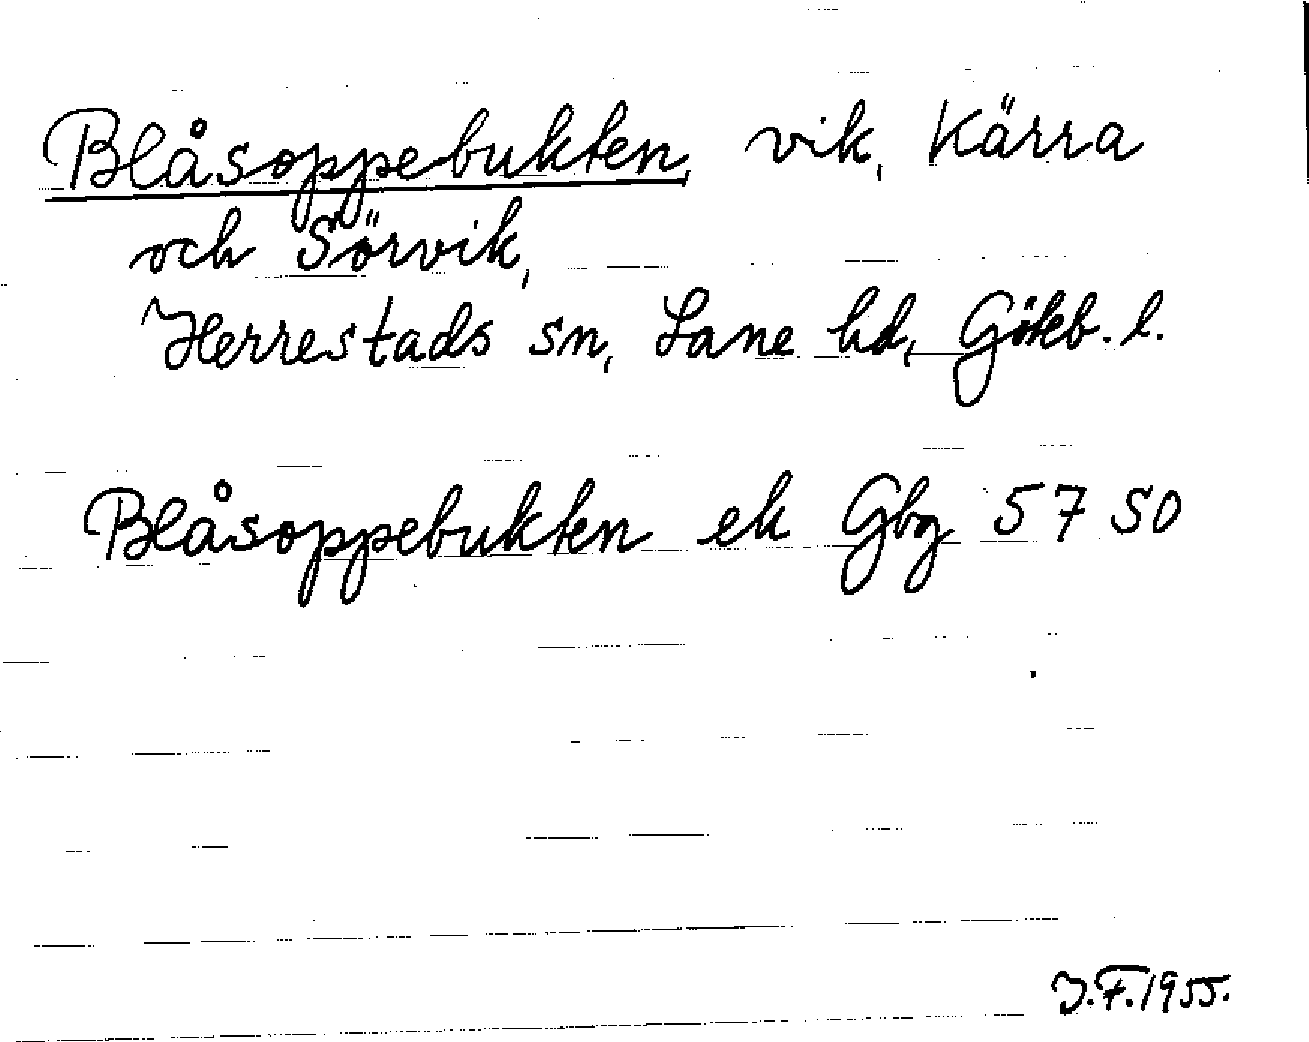 Blåsoppebukten, vik, Kärra
och Sörvik,
Herrestads sn, Lane hd, Göteb. l.
Blåsoppebukten ek Gbg 57 SO
J.F. 1955.